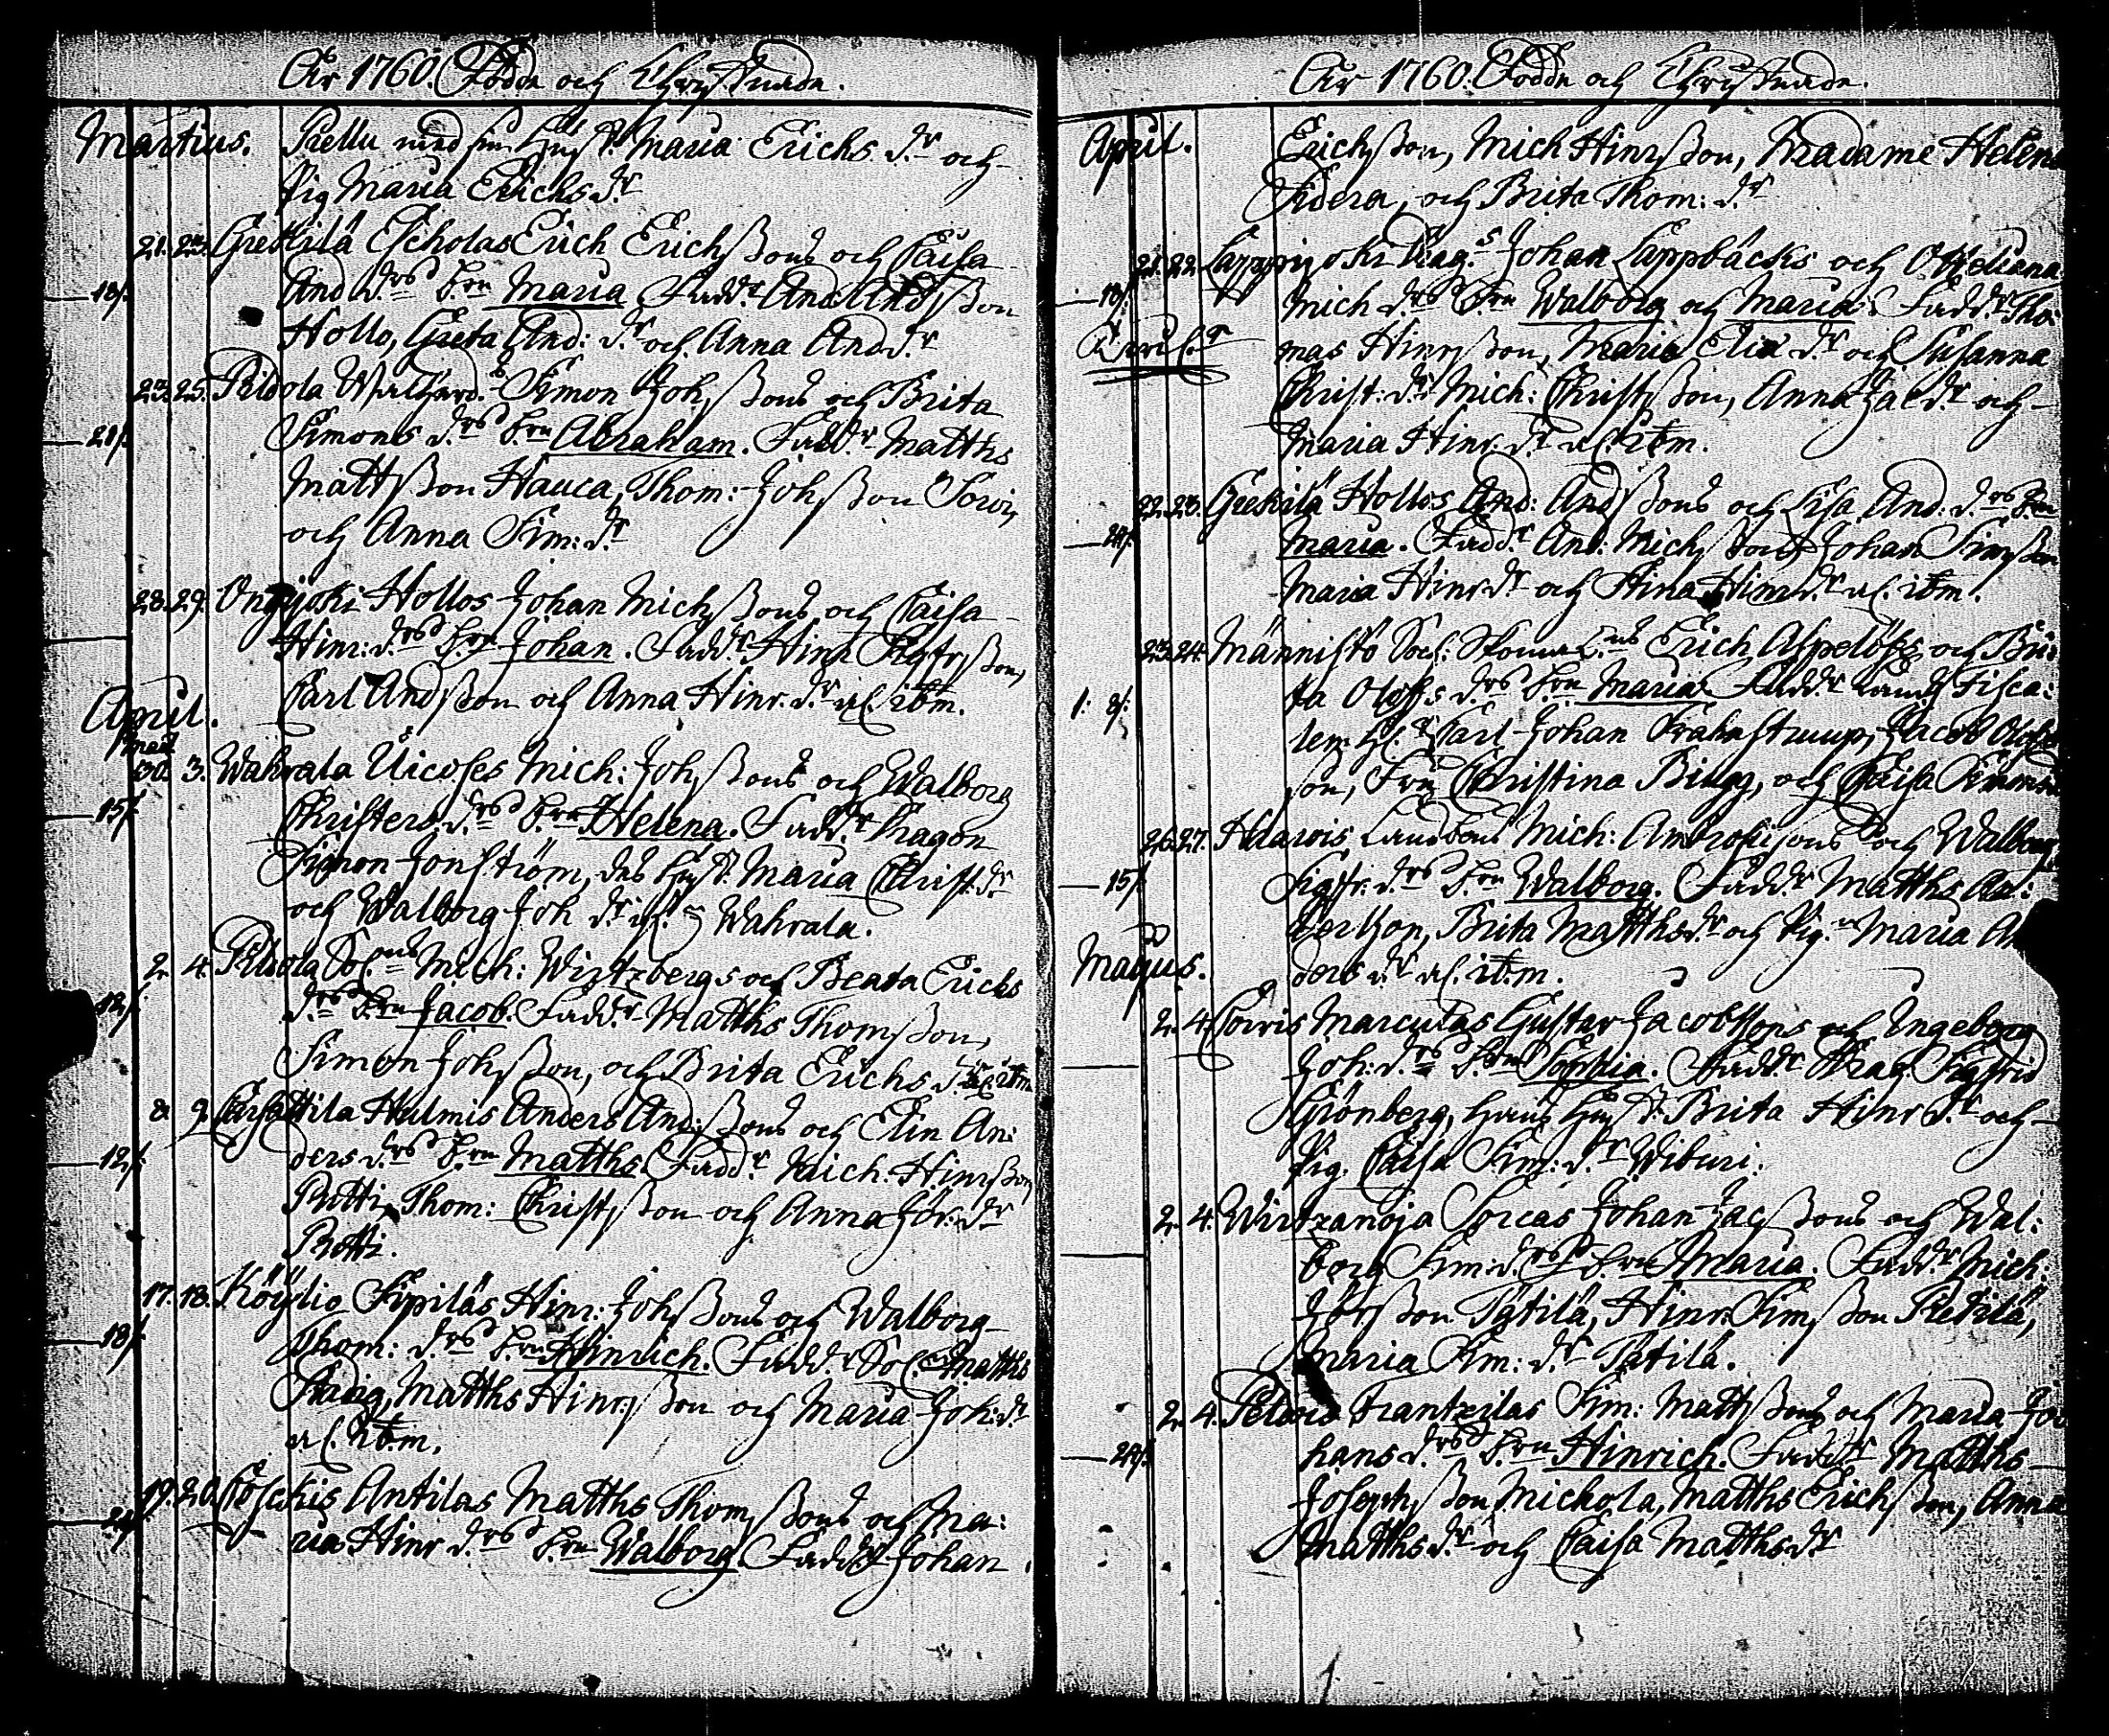 År 1760. Födde och Christnade.
Martius. Prellu med sin Hust. Maria Erichs d.r och
Pig Maria Erichs d.r
21. 22. Grekilä Eskolas Erich Erichssons och Caisa
18/. And d.rs b.rn Maria. Fadd.r And Andsson
Hollo, Greta And: d.r och Anna And d.r
23. 25. Pildola Simon Johssons och Brita
21/. Simons d.rs b.rn Abraham. Fadd.r Matths
Mattsson Hauca, Thom: Johsson
och Anna Sim: d.r
28. 29. Ongijoki Hollos Johan Michssons och Caisa
Hinr: d.rs b.rn Johan. Fadd.r Hinr Sigfrsson,
Carl Andsson och Anna Hinr. d.r ibm.
April.
30. 3. Wahrala Uicoises Mich: Johssons och Walborg
15/. Christers d.rs b.rn Helena. Fadd.r Dragon
Simon Jonström, des Hust. Maria Christ: d.r
och Walborg Joh d.r Wahrala.
2. 4. Pildola Sol.ns Mich: Wirtzbergs och Beata Erichs
12/. d.rs b.rn Jacob. Fadd.r Matths Thomsson,
Simon Johsson, och Brita Erichs d.r ibm
8. 9. Carsattila Hulmis Anders And:ssons och Elin An:
12/. ders d.rs b.rn Matths. Fadd.r Mich: Hinrsson
Rutti, Thom: Christsson och Anna Jör: d.r
Rotti.
17. 18. Köyliö Sipiläs Hinr: Johssons och Walborg
18/. Thom: d.rs b.rn Hinrich. Fadd.r Sol. Matths
Stadig, Matths Hinrsson och Maria Joh: d.r
ibm.
19. 20. Antilas Matths Thomssons och Ma:
24/. ria Hinr d.rs b.rn Walborg. Fadd.r Johan
År 1760. Födde och Christnade.
April. Erichsson, Mich Hinrsson, Madame Helena
Sidera, och Brita Thom: d.r
21. 22. Lappijoki Drag.s Johan Lappbäcks och
18/. Mich d.rs b.rn Walborg och Maria. Fadd.r Tho:
mas Hinrsson, Maria Elia d.r och Susanna
Christ: d.r Mich: Christsson, Anna Jac d.r och
Maria Hinr: d.r ibm.
22. 23. Grekilä Hollos And: Andssons och Lisa And: d.rs b.rn
24/. Maria. Fadd.r And: Michsson, Johan Simsson
Maria Hinr d.r och Stina Hinr d.r ibm.
23. 24. Männistö Sock: Skomak.ns Erich Aspelöfs och Bri:
1: 8/. ta Olofs d.rs b.rn Maria. Fadd.r Lands Fisca:
len H.r Carl Johan Jacob Olofs
son, Fru Christina Bugg, och Caisa Simons
26. 27. Harvois Landbond Mich: Ambrosijsons och Walborg
15/. Sigfr: d.rs b.rn Walborg. Fadd.r Matths An:
dersson, Brita Matths d.r och Pig.n Maria An
Majus. ders d.r ibm.
2. 4. Corris Marcutas Gustav Jacobssons och Ingeborg
Joh: d.rs b.rn Sophia. Fadd.r Drag. Sigfrid
Grönberg, hans Hust. Brita Hinr d.r och
Pig. Caisa Sim: d.r Wiburi.
2. 4. Wirtzanoja Sorcas Johan Jacssons och Wal:
borg Sim: d.rs b.rn Maria. Fadd.r Mich:
Jörsson Tatila, Hinr Simsson Pletilä,
Maria Sim: d.r Tatila.
2. 4. Peldois Frantzilas Sim: Mattssons och Maria Jo
24/. hans d.rs b.rn Hinrich. Fadd.r Matths
Josephsson Mickola, Matths Erichsson, Anna
Matths d.r och Caisa Matths d.r